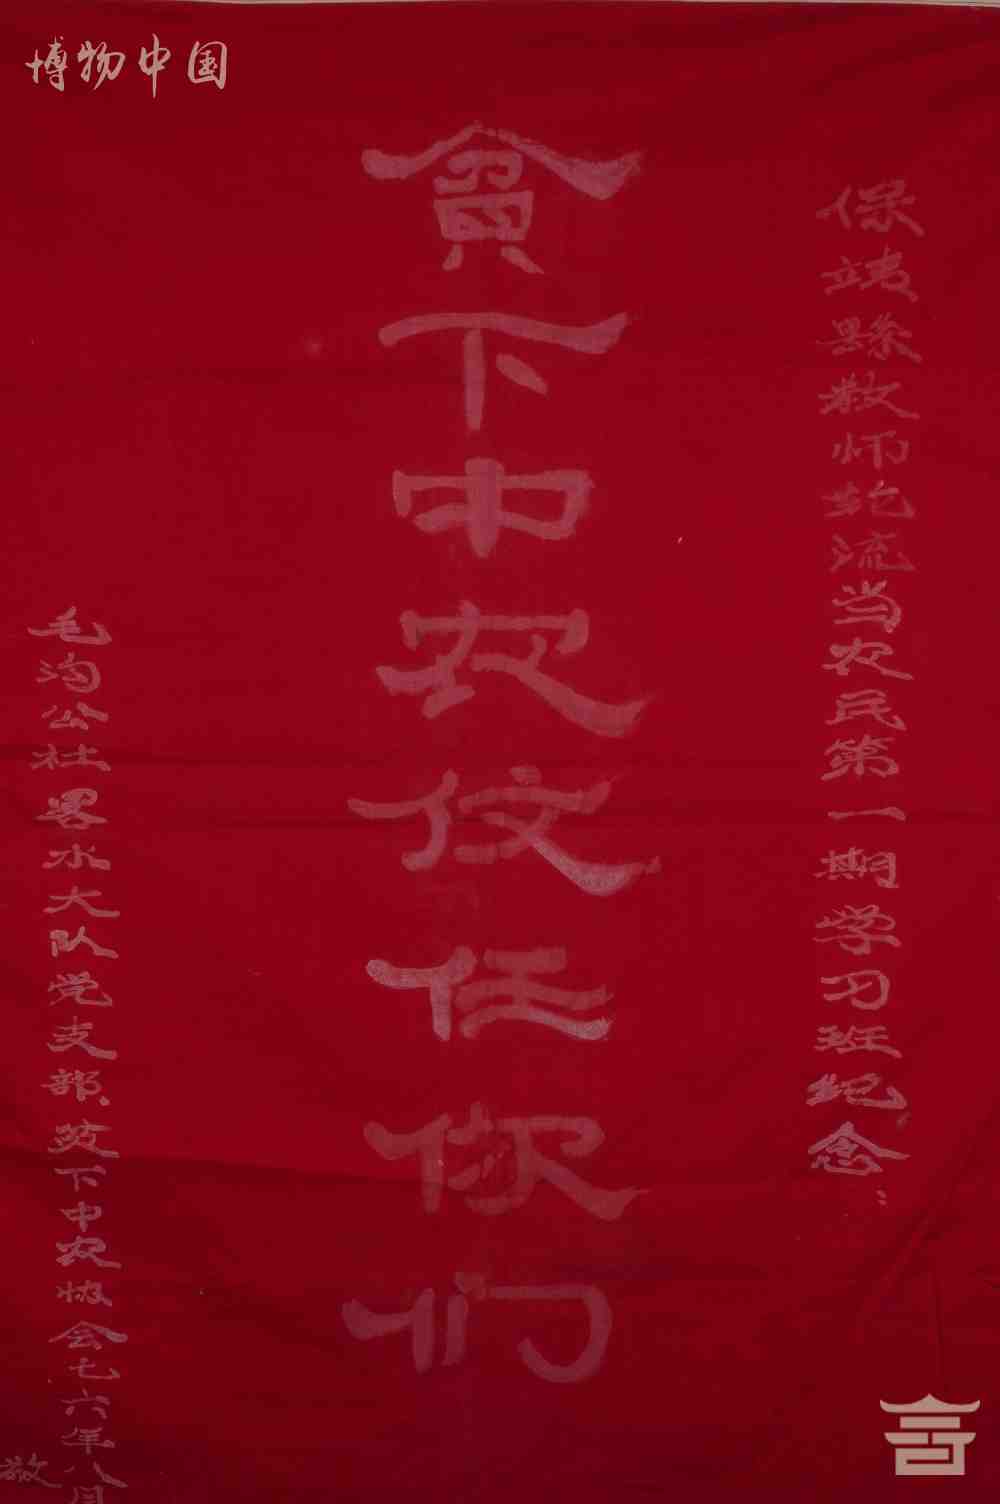 博物中国
保靖縣教师轮流当农民第一期学习班纪念：
贫下中农伩任你们
毛沟公社畧水大队党支部、贫下中农协会七六年八月
敬